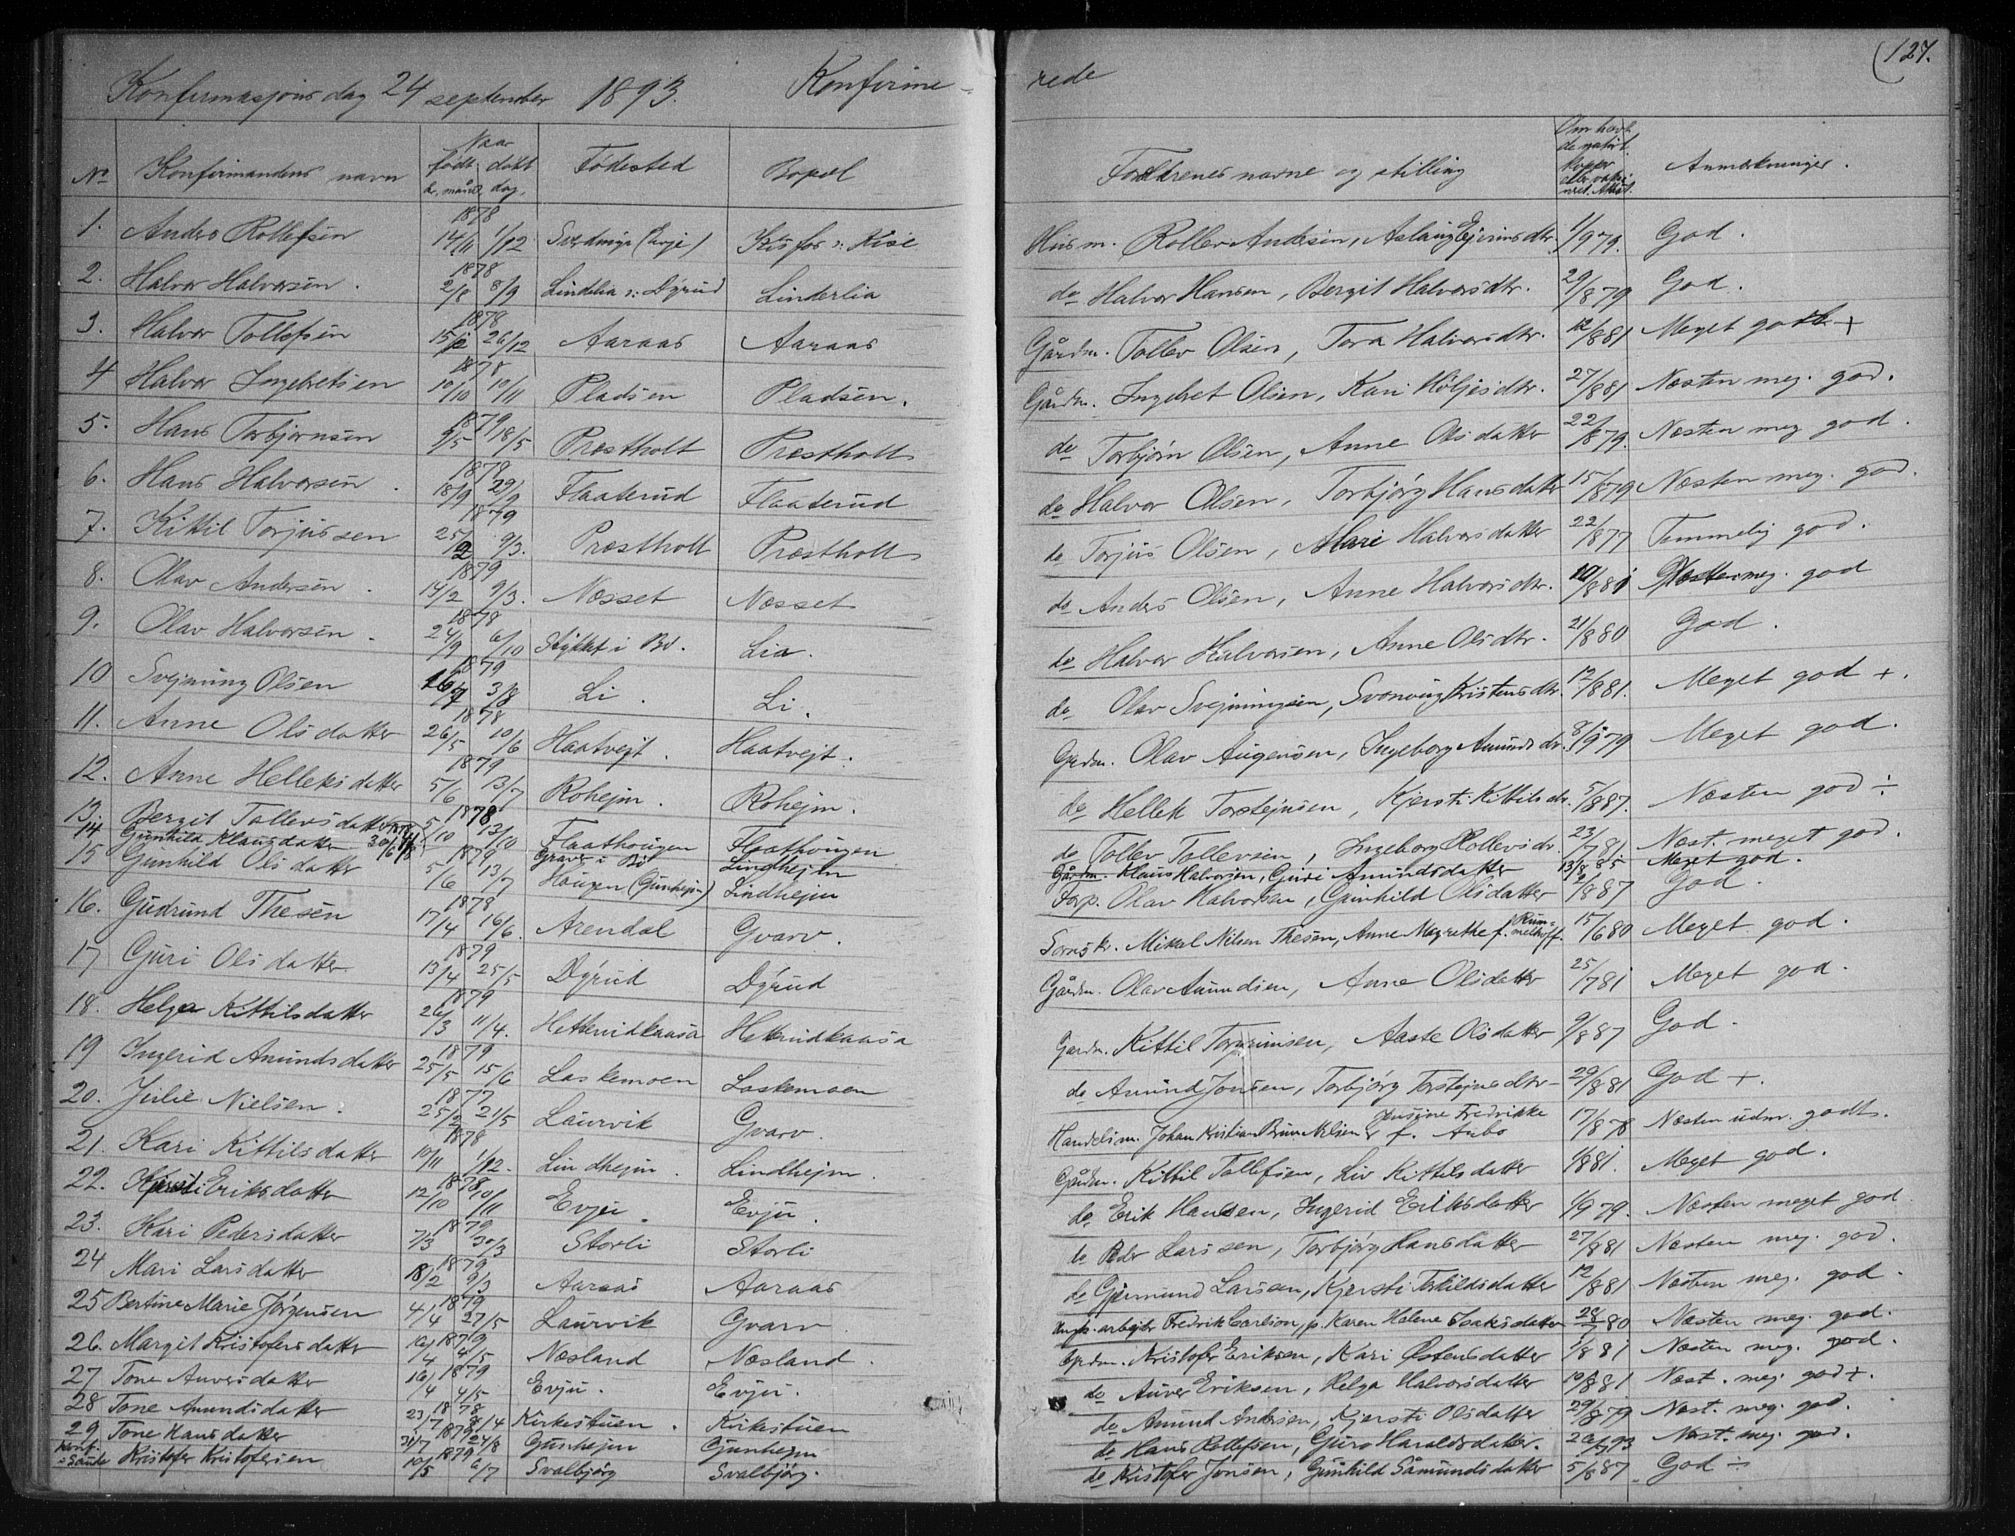 127.
Konfirmasjons dag 24 september 1893. Konfirme- rede
No Konfirmandens navn Naar født døbt år, måned, dag. Fødested Bopæl Forældrenes navne og stilling Om havt de natürl. kopper eller vakcineret. Attest. Anmærkninger.
1. Anders Rollefsen 1878 14/11 1/12 Sverdmyr (Evje) Kisfos i: Kise Husm. Rollev Andersen, Aslaug Ejvinsdtr. 1/9 79. God.
2. Halvor Halvorsen. 1878 2/8 8/9 Lindelia i: Dyrud Linderlia do Halvor Hansen, Bergit Halvorsdtr. 29/8 79 God.
3. Halvor Tollefsen 1878 15/12 26/12 Aaraas Aaraas Gårdm. Tollev Olsen, Tora Halvorsdtr. 12/8 81 Meget godt +
4 Halvor Ingebretsen 1878 10/10 10/11 Pladsen Pladsen. Gårdm. Ingebret Olsen, Kari Höljesdtr. 27/8 81 Næsten meg. god.
5. Hans Torbjørnsen 1879 9/5 18/5 Præstholt Præstholt do Torbjörn Olsen, Anne Olsdatter 22/8 79. Næsten meg god.
6. Hans Halvorsen. 1878 18/9 29/9 Flaaterud Flaaterud do Halvor Olsen, Torbjörg Hansdatter 15/8 79 Næsten meg. god.
7. Kittil Torjussen 1879 25/2 9/3. Præstholt Præstholt do Torjus Olsen, Mari Halvorsdatter 22/8 77 Temmelig god.
8. Olav Andersen. 1879 14/2 9/3. Næsset Næsset do Anders Olsen, Anne Halvorsdtr. 10/8 81 Næsten meg. god
9. Olav Halvorsen. 1878 24/9 6/10 Stykket i Bø. Lia. do Halvor Halvorsen, Anne Olsdtr. 21/8 80 God.
10 Svejnung Olsen 1879 16/7 3/8 Li. Li. do Olav Svejnungsen, Svanaug Kristensdtr. 12/8 81. Meget god +.
11. Anne Olsdatter 1878 26/5 10/6 Haatvejt. Haatvejt. Gårdm. Olav Augensen, Ingeborg Amundsdtr. 8/9 79 Meget god.
12. Anne Helleksdatter 1879 5/6 13/7 Rohejm. Rohejm. do Hellek Torstejnsen, Kjersti Kittilsdtr. 5/8 87. Næsten god ÷
13. Bergit Tollevsdatter 1878 5/10 13/10 Flaathougen Flaathougen do Tollev Tollevsen, Ingeborg Rollevsdtr. 23/7 81. Næst. meget god.
14 Gunhild Klausdatter 30/6 Graver i Bø Lindhejm Gårdm. Klaus Halvorsen, Guri Amundsdatter 13/8 85 Meget god.
15 Gunhild Olsdatter 1879 5/6 13/7 Hougen (Gunhejm) Lindhejm Torp. Olav Halvorsen, Gunhild Olsdatter 2/8 87 God.
16. Gudrund Thesen 1878 17/4 16/6. Arendal Gvarv. Sornskr. Mikkel Nilsen Thesen, Anne Magrethe f. Rummelhoff. 15/6 80 Meget god.
17 Guri Olsdatter 1879 13/4 25/5 Dyrud Dyrud Gårdm. Olav Amundsen, Anne Olsdatter 25/7 81 Meget god.
18. Helga Kittilsdatter 1879 26/3 11/4. Hettervidkaasa Hettervidkaasa Gardm. Kittil Torgrimsen, Aaste Olsdatter 9/8 87 God.
19 Ingerid Amundsdatter 1879 25/5 15/6 Laskemoen Laskemoen do Amund Jonsen, Torbjörg Torstejnsdtr- 29/8 81 God +.
20. Julie Nielsen. 1877 25/2 21/5 Laurvik Gvarv. Handelsm. Johan Kristian Brun Nilsen & Jensine Fredrikke f. Aubo 17/8 78 Næsten udm. godt.
21. Kari Kittilsdatter 1878 10/11 1/12. Lindhejm. Lindhejm. Gårdm. Kittil Tollefsen, Liv Kittilsdatter 1/8 81. Meget god.
22. Kjersti Eriksdatter 1878 12/10 10/11 Evju. Evju. do Erik Hansen, Ingerid Eriksdatter 1/9 79. Næsten meget god
23. Kari Pedersdatter 1879 7/3 30/3 Storli Storli do Peder Larssen, Torbjörg Hansdatter 27/8 81 Næsten meg. god.
24 Mari Larsdatter 1879 18/2 9/3 Aaraas Aaraas do Gjermund Larsen, Kjersti Torkildsdatter 12/8 81 Næsten meg. god.
25 Bertine Marie Jörgensen 1879 4/4 27/5 Laurvik Gvarv arbejder Fredrik Carlson, p. Karen Helene Isaksdatter 28/7 80 Næsten meg. god.
26. Margit Kristofersdatter 1879 16/4 4/5 Næsland Næsland. Gårdm. Kristofer Eriksen, Kari Østensdatter 1/8 81 Næsten meg. god.
27 Tone Auversdatter 1879 16/4 4/5 Evju. Evju. do Auver Eriksen, Helga Halvorsdatter 10/8 81 Næst. meg. god +.
28 Tone Amundsdatter 1878 23/7 8/4 Kirkestuen. Kirkestuen do Amund Andersen, Kjersti Olsdatter 29/8 79 Næst. meg. god.
29 Tone Hansdatter 1879 31/7 24/8 Gunhejm Gunhejm do Hans Rollefsen, Guro Haraldsdatter. 26/7 93 Næst. meg. god.
Konf. i Saude Kristofer Kristofersen 1879 10/5 6/7 Svalbjörg Svalbjörg. do Kristofer Jonsen, Gunhild Såmundsdatter 5/8 87. God ÷